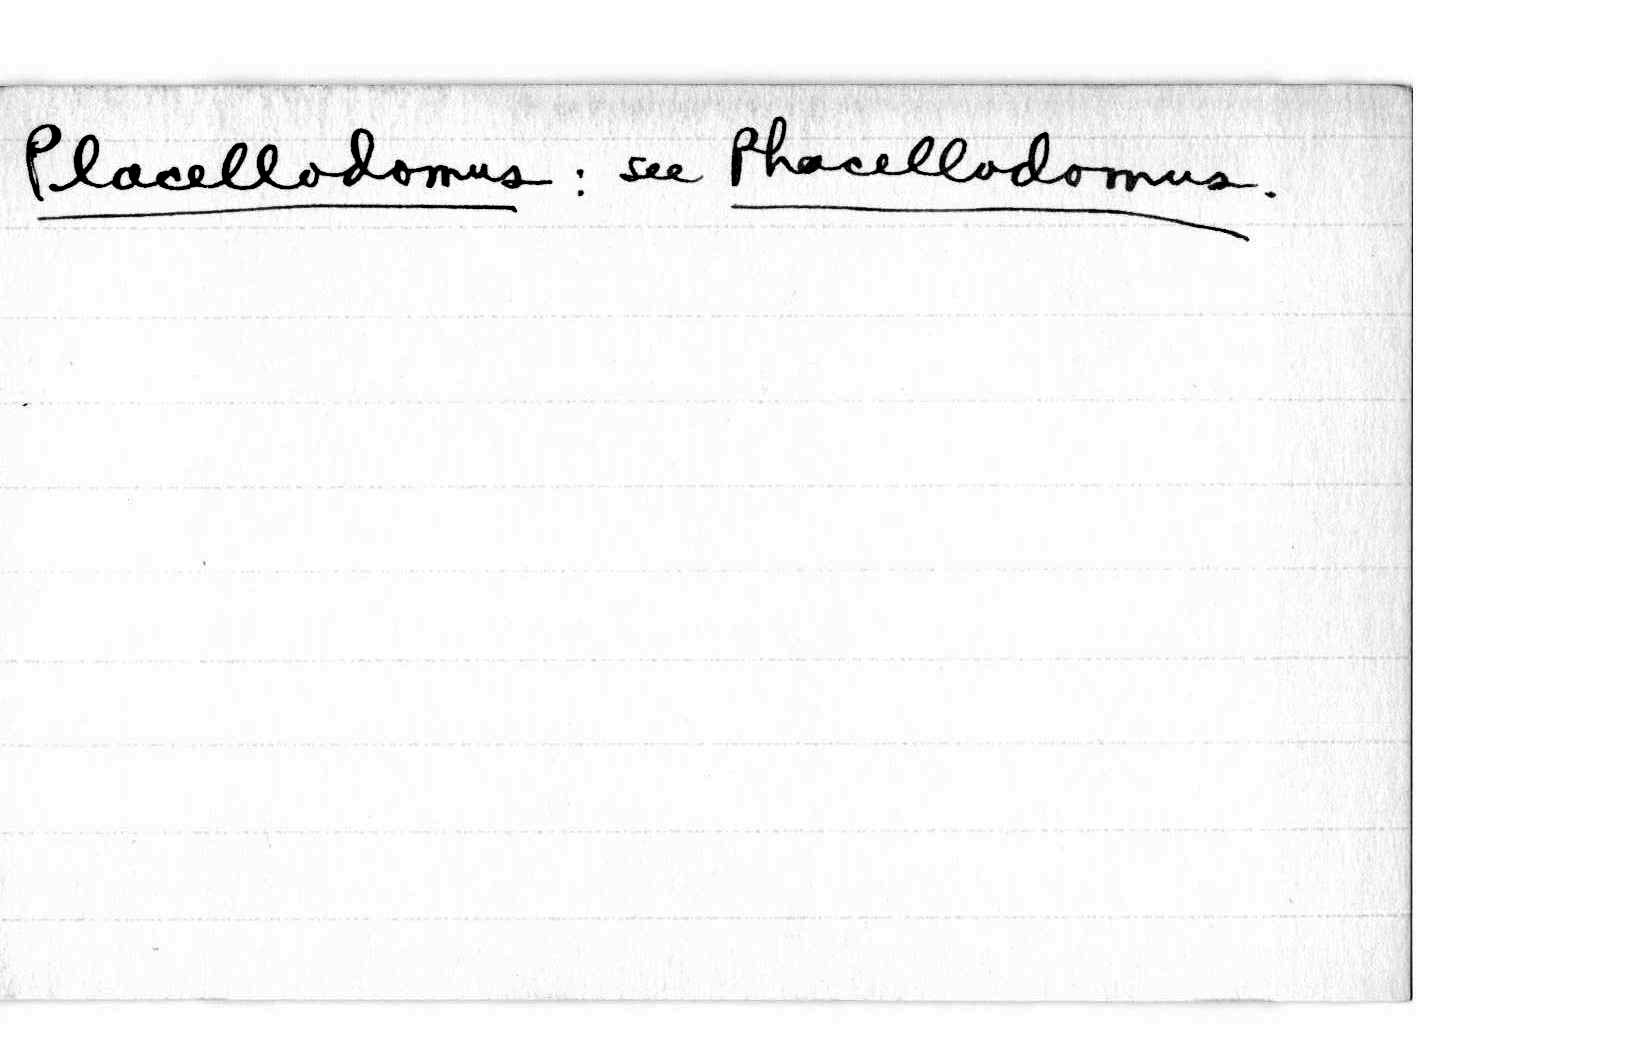 Placellodomus : see Phacellodomus.